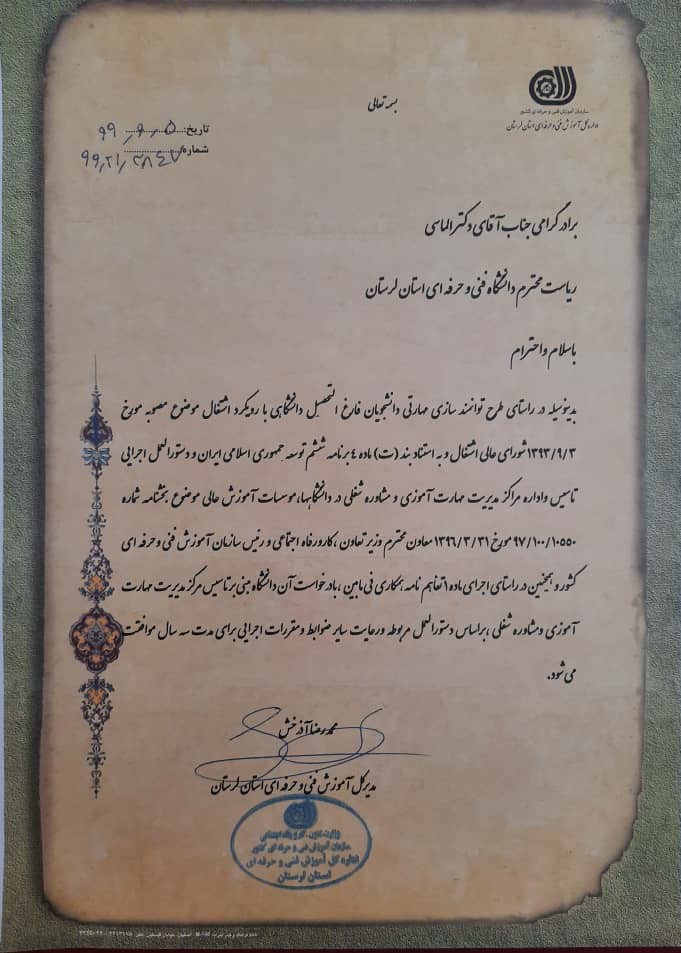 بسمه تعالی
سازمان آموزش فنی و حرفه ای کشور
اداره کل آموزش فنی و حرفه ای استان لرستان
تاریخ: ۹۹٫۹٫۰۵
شماره: ۹۹٫۲۱٫۲۸۴۷
برادر گرامی جناب آقای دکتر الماسی
ریاست محترم دانشگاه فنی و حرفه ای استان لرستان
باسلام و احترام
بدینوسیله در راستای طرح توانمند سازی مهارتی دانشجویان فارغ التحصیل دانشگاهی با رویکرد اشتغال موضوع مصوبه مورخ
۱۳۹۳/۹/۳ شورای عالی اشتغال و به استناد بند (ت) ماده ٤ برنامه ششم توسعه جمهوری اسلامی ایران و دستورالعمل اجرایی
تاسیس واداره مراکز مدیریت مهارت آموزی و مشاوره شغلی در دانشگاهها،موسسات آموزش عالی موضوع بخشنامه شماره
۹۷/۱۰۰/۱۰۵۵۰ مورخ ۱۳۹٦/۳/۳۱ معاون محترم وزیر تعاون ،کارورفاه اجتماعی و رئیس سازمان آموزش فنی و حرفه ای
کشور و همچنین در راستای اجرای ماده ۱ تفاهم نامه همکاری فی مابین ،بادرخواست آن دانشگاه مبنی بر تاسیس مرکز مدیریت مهارت
آموزی ومشاوره شغلی ،براساس دستورالعمل مربوطه ورعایت سایر ضوابط ومقررات اجرایی برای مدت سه سال موافقت
می شود.
محمدرضا آذرخش
مدیرکل آموزش فنی و حرفه ای استان لرستان
وزارت تعاون، کار و رفاه اجتماعی
سازمان آموزش فنی و حرفه ای کشور
اداره کل آموزش فنی و حرفه ای
استان لرستان